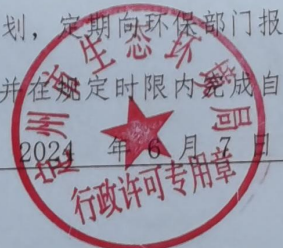 划，定期向环保部门报
并在规定时限内完成自
2024 年 6 月 7 日
州市生态环境局
行政许可专用章